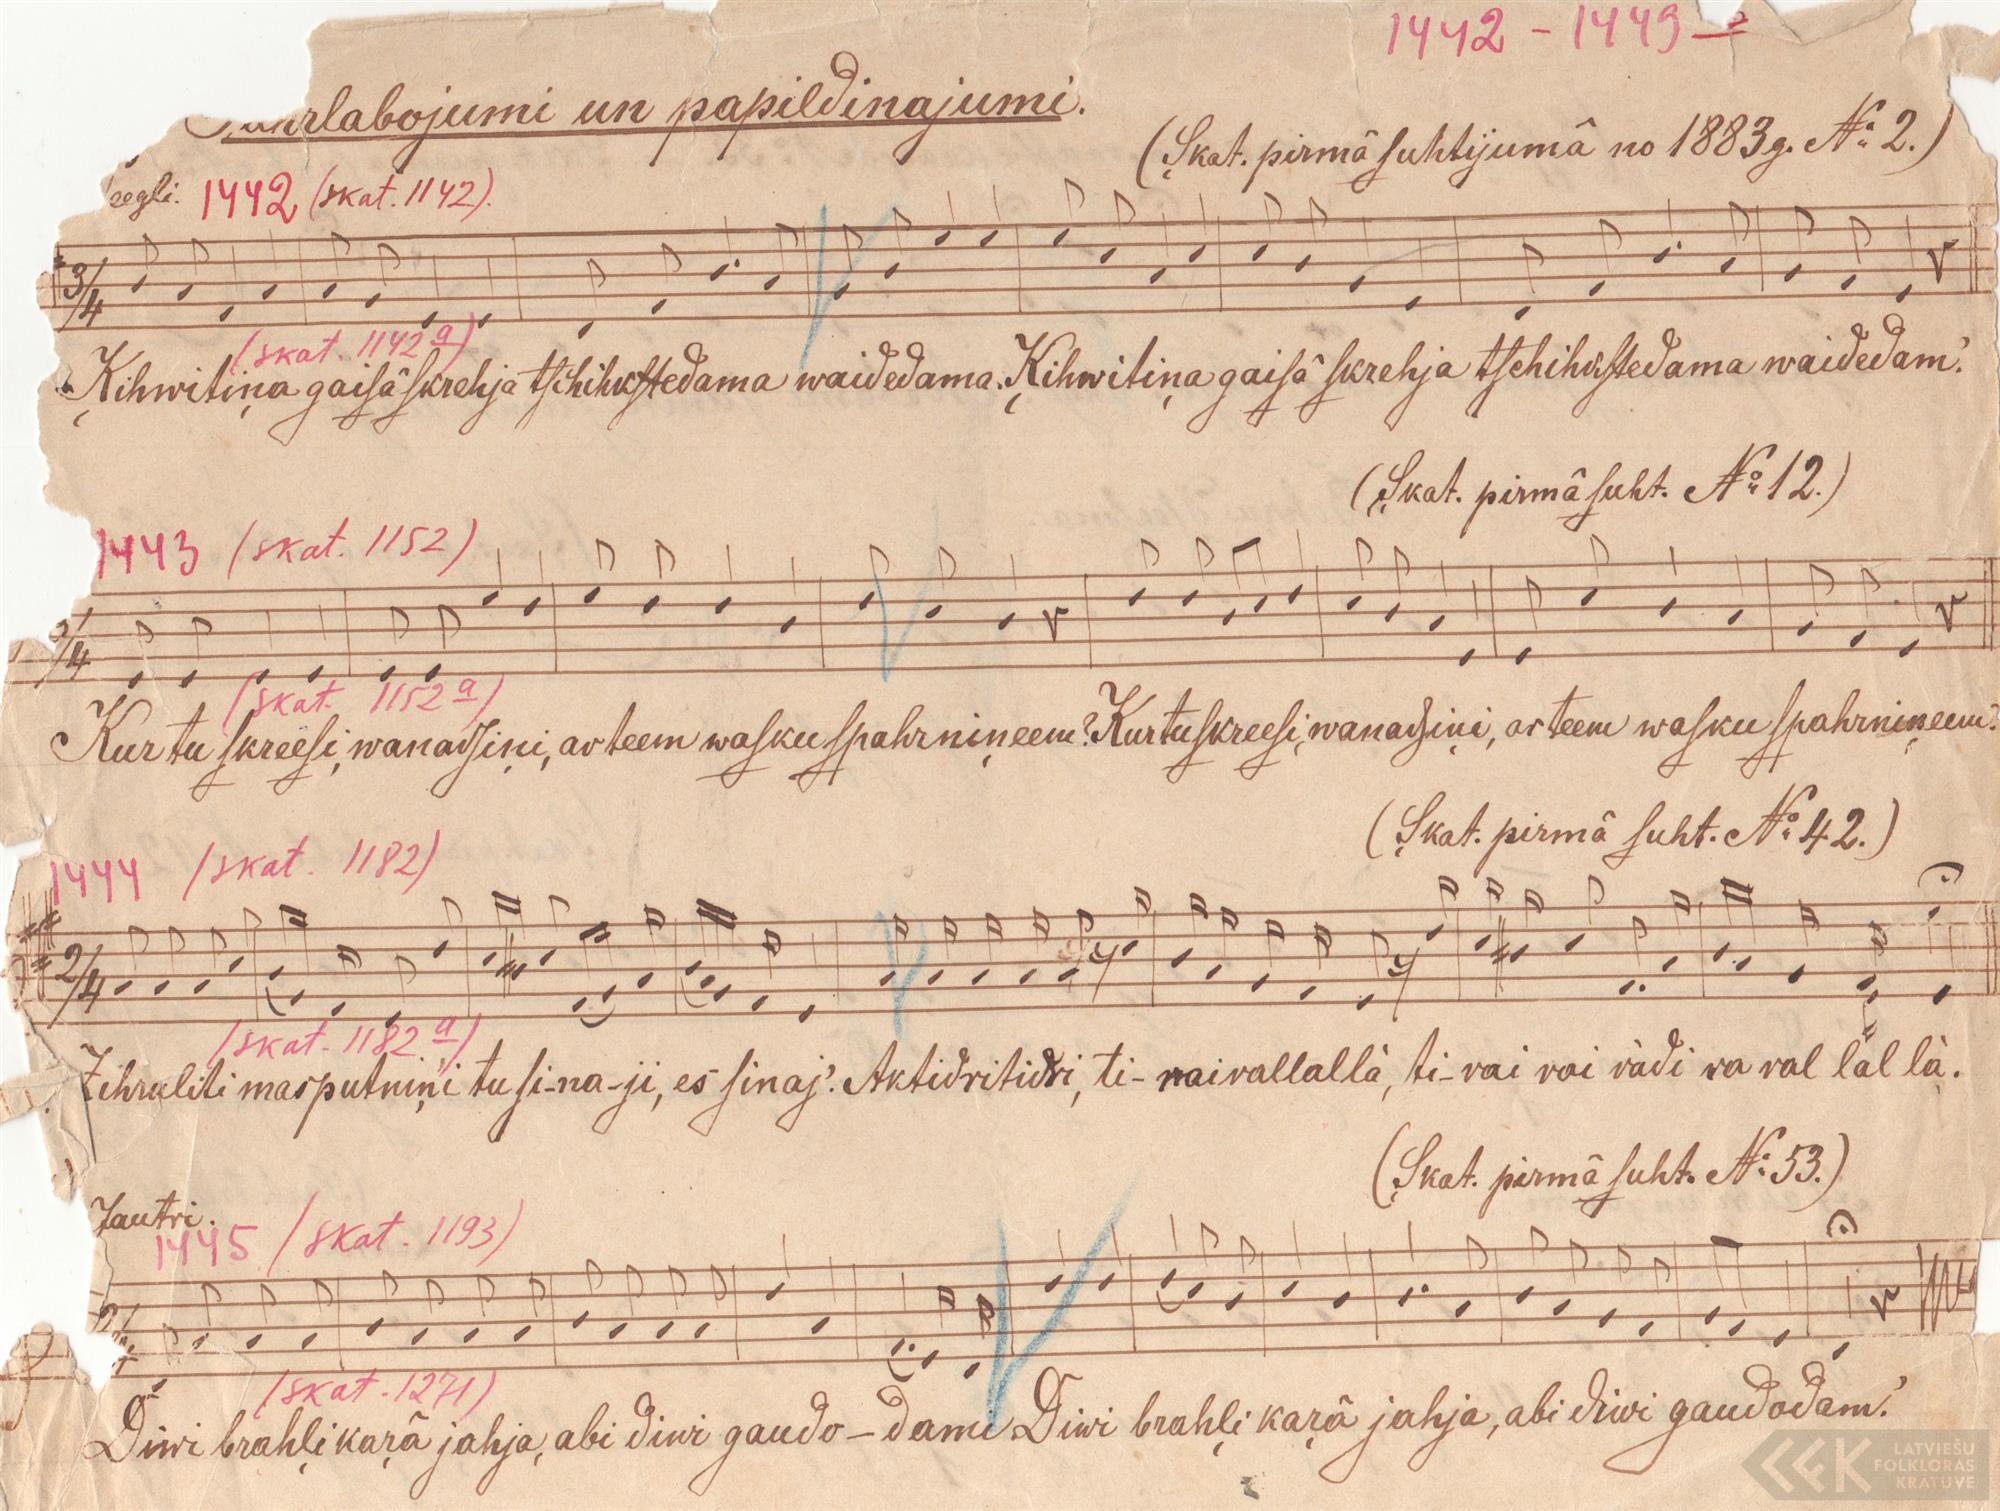 1442 - 1449
un papildinajumi.
(Skat. pirmâ suhtijumâ no 1883g. № 2.)
1442 (skat. 1142).
3/4
(skat. 1142 a)
Ķihwitiņa gaisâ skrehja tschihkstedama waidedama. Ķihwitiņa gaisâ skrehja tschihkstedama waidedam'.
(Skat. pirmâ suht. № 12.)
1443 (skat. 1152)
(skat. 1152 a)
Kur tu skreesi, wanadsiņi, ar teem wasku spahrniņeem? Kur tu skreesi, wanadsiņi, ar teem wasku spahrniņeem?
(Skat. pirmâ suht. № 42.)
1444 (skat. 1182)
2/4
(skat. 1182 a)
Zihruliti mas putniņi tu si-na-ji, es sinaj'. Aktidritidri, ti-rairallallà, ti-rai rai ràdi ra ral lal là.
(Skat. pirmâ suht. № 53.)
Jautri.
1445 (skat. 1193)
(skat. 1271)
Diwi brahļi kaŗâ jahja, abi diwi gaudo-dami Diwi brahļi kaŗâ jahja, abi diwi gaudodam'.
LATVIEŠU
FOLKLORAS
KRĀTUVE